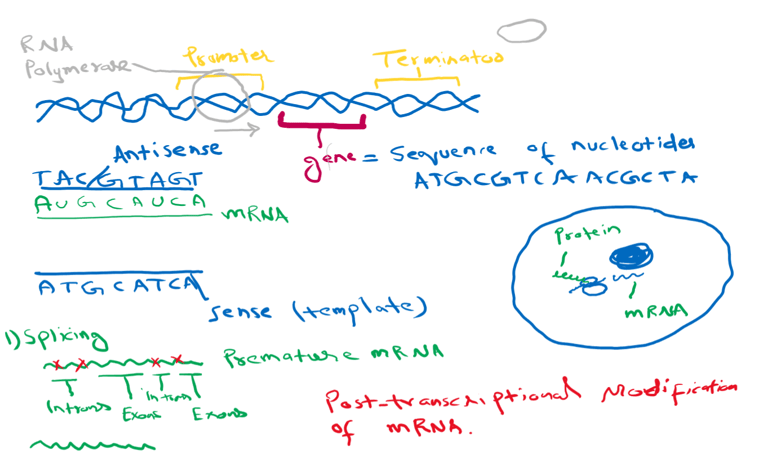 RNA
Polymerase
Promoter
Terminator
gene = Sequence of nucleotides
ATGCGTCA ACGCTA
Antisense
TACGTAGT
AUGCAUCA mRNA
ATGCATCA
sense (template)
Protein
mRNA
1) Splixing
Premature mRNA
Introns
Exons
Intron
Exons
Post-transcriptional Modification
of mRNA.